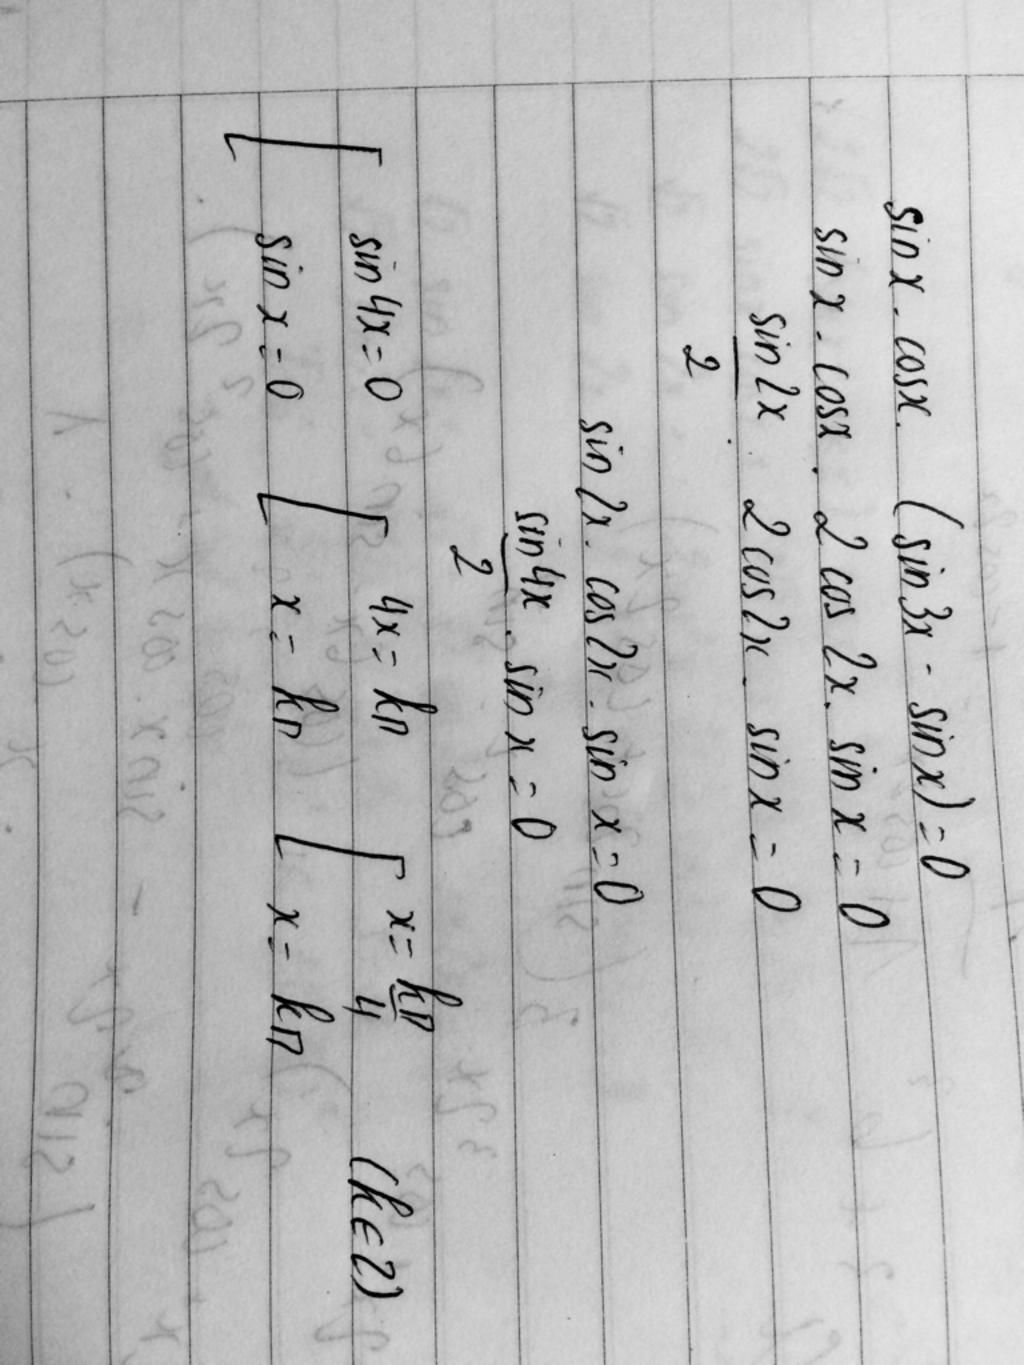 sin x . cos x . (sin 3x - sin x) = 0
sin x . cos x . 2 cos 2x . sin x = 0
sin 2x / 2 . 2 cos 2x . sin x = 0
sin 2x . cos 2x . sin x = 0
sin 4x / 2 . sin x = 0
[ sin 4x = 0 [ 4x = kπ [ x = kπ / 4 (k ∈ Z)
sin x = 0 x = kπ x = kπ